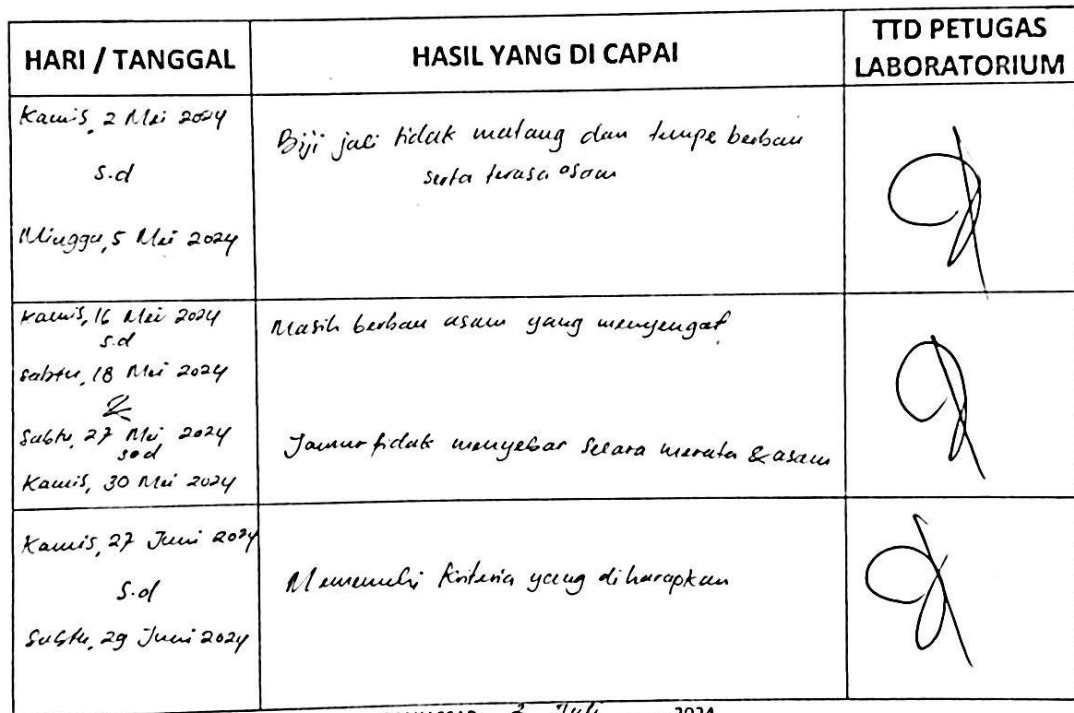 HARI / TANGGAL
HASIL YANG DI CAPAI
TTD PETUGAS
LABORATORIUM
Kamis, 2 Mei 2024
s.d
Minggu, 5 Mei 2024
Biji jali tidak matang dan tempe berbau
serta terasa asam
Kamis, 16 Mei 2024
s.d
Sabtu, 18 Mei 2024
&
Sabtu, 27 Mei, 2024
s.d
Kamis, 30 Mei 2024
Masih berbau asam yang menyengat
Jamur tidak menyebar secara merata & asam
Kamis, 27 Juni 2024
s.d
Sabtu, 29 Juni 2024
Memenuhi kriteria yang diharapkan
Juli 2024